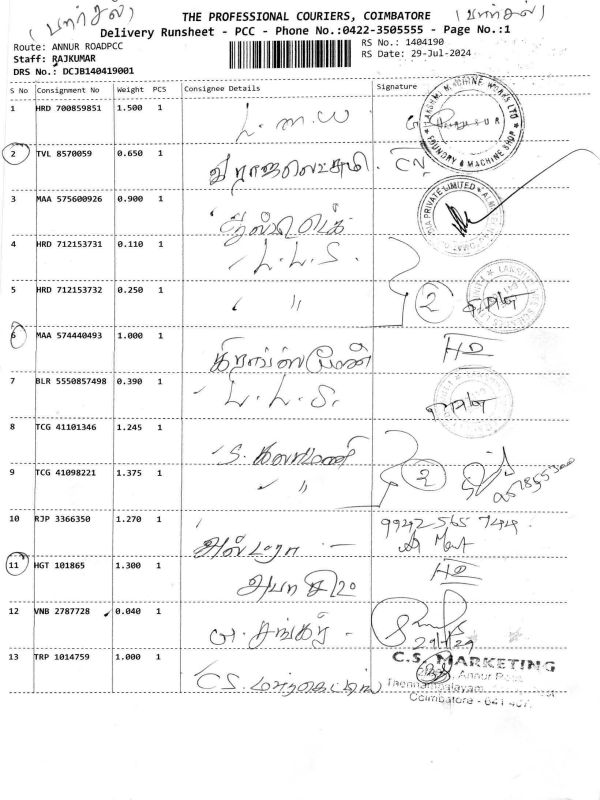 (பார்சல்) THE PROFESSIONAL COURIERS, COIMBATORE (பார்சல்)
Delivery Runsheet - PCC - Phone No.:0422-3505555 - Page No.:1
Route: ANNUR ROADPCC RS No.: 1404190
Staff: RAJKUMAR RS Date: 29-Jul-2024
DRS No.: DCJB140419001
S No Consignment No Weight PCS Consignee Details Signature
1 HRD 700859851 1.500 1 L.M.W
LAKSHMI MACHINE WORKS LTD
FOUNDRY & MACHINE SHOP
2 TVL 8570059 0.650 1
3 MAA 575600926 0.900 1
PRIVATE LIMITED
4 HRD 712153731 0.110 1 L.L.S.
5 HRD 712153732 0.250 1 " 2
6 MAA 574440493 1.000 1
7 BLR 5550857498 0.390 1 L.L.S.
8 TCG 41101346 1.245 1 S. கலாமணி
9 TCG 41098221 1.375 1 " 2
10 RJP 3366350 1.270 1
11 HGT 101865 1.300 1
12 VNB 2787728 0.040 1 G. சங்கர் -
13 TRP 1014759 1.000 1 C.S. மார்கெட்டிங்
C.S. MARKETING
Annur Road
Coimbatore - 641